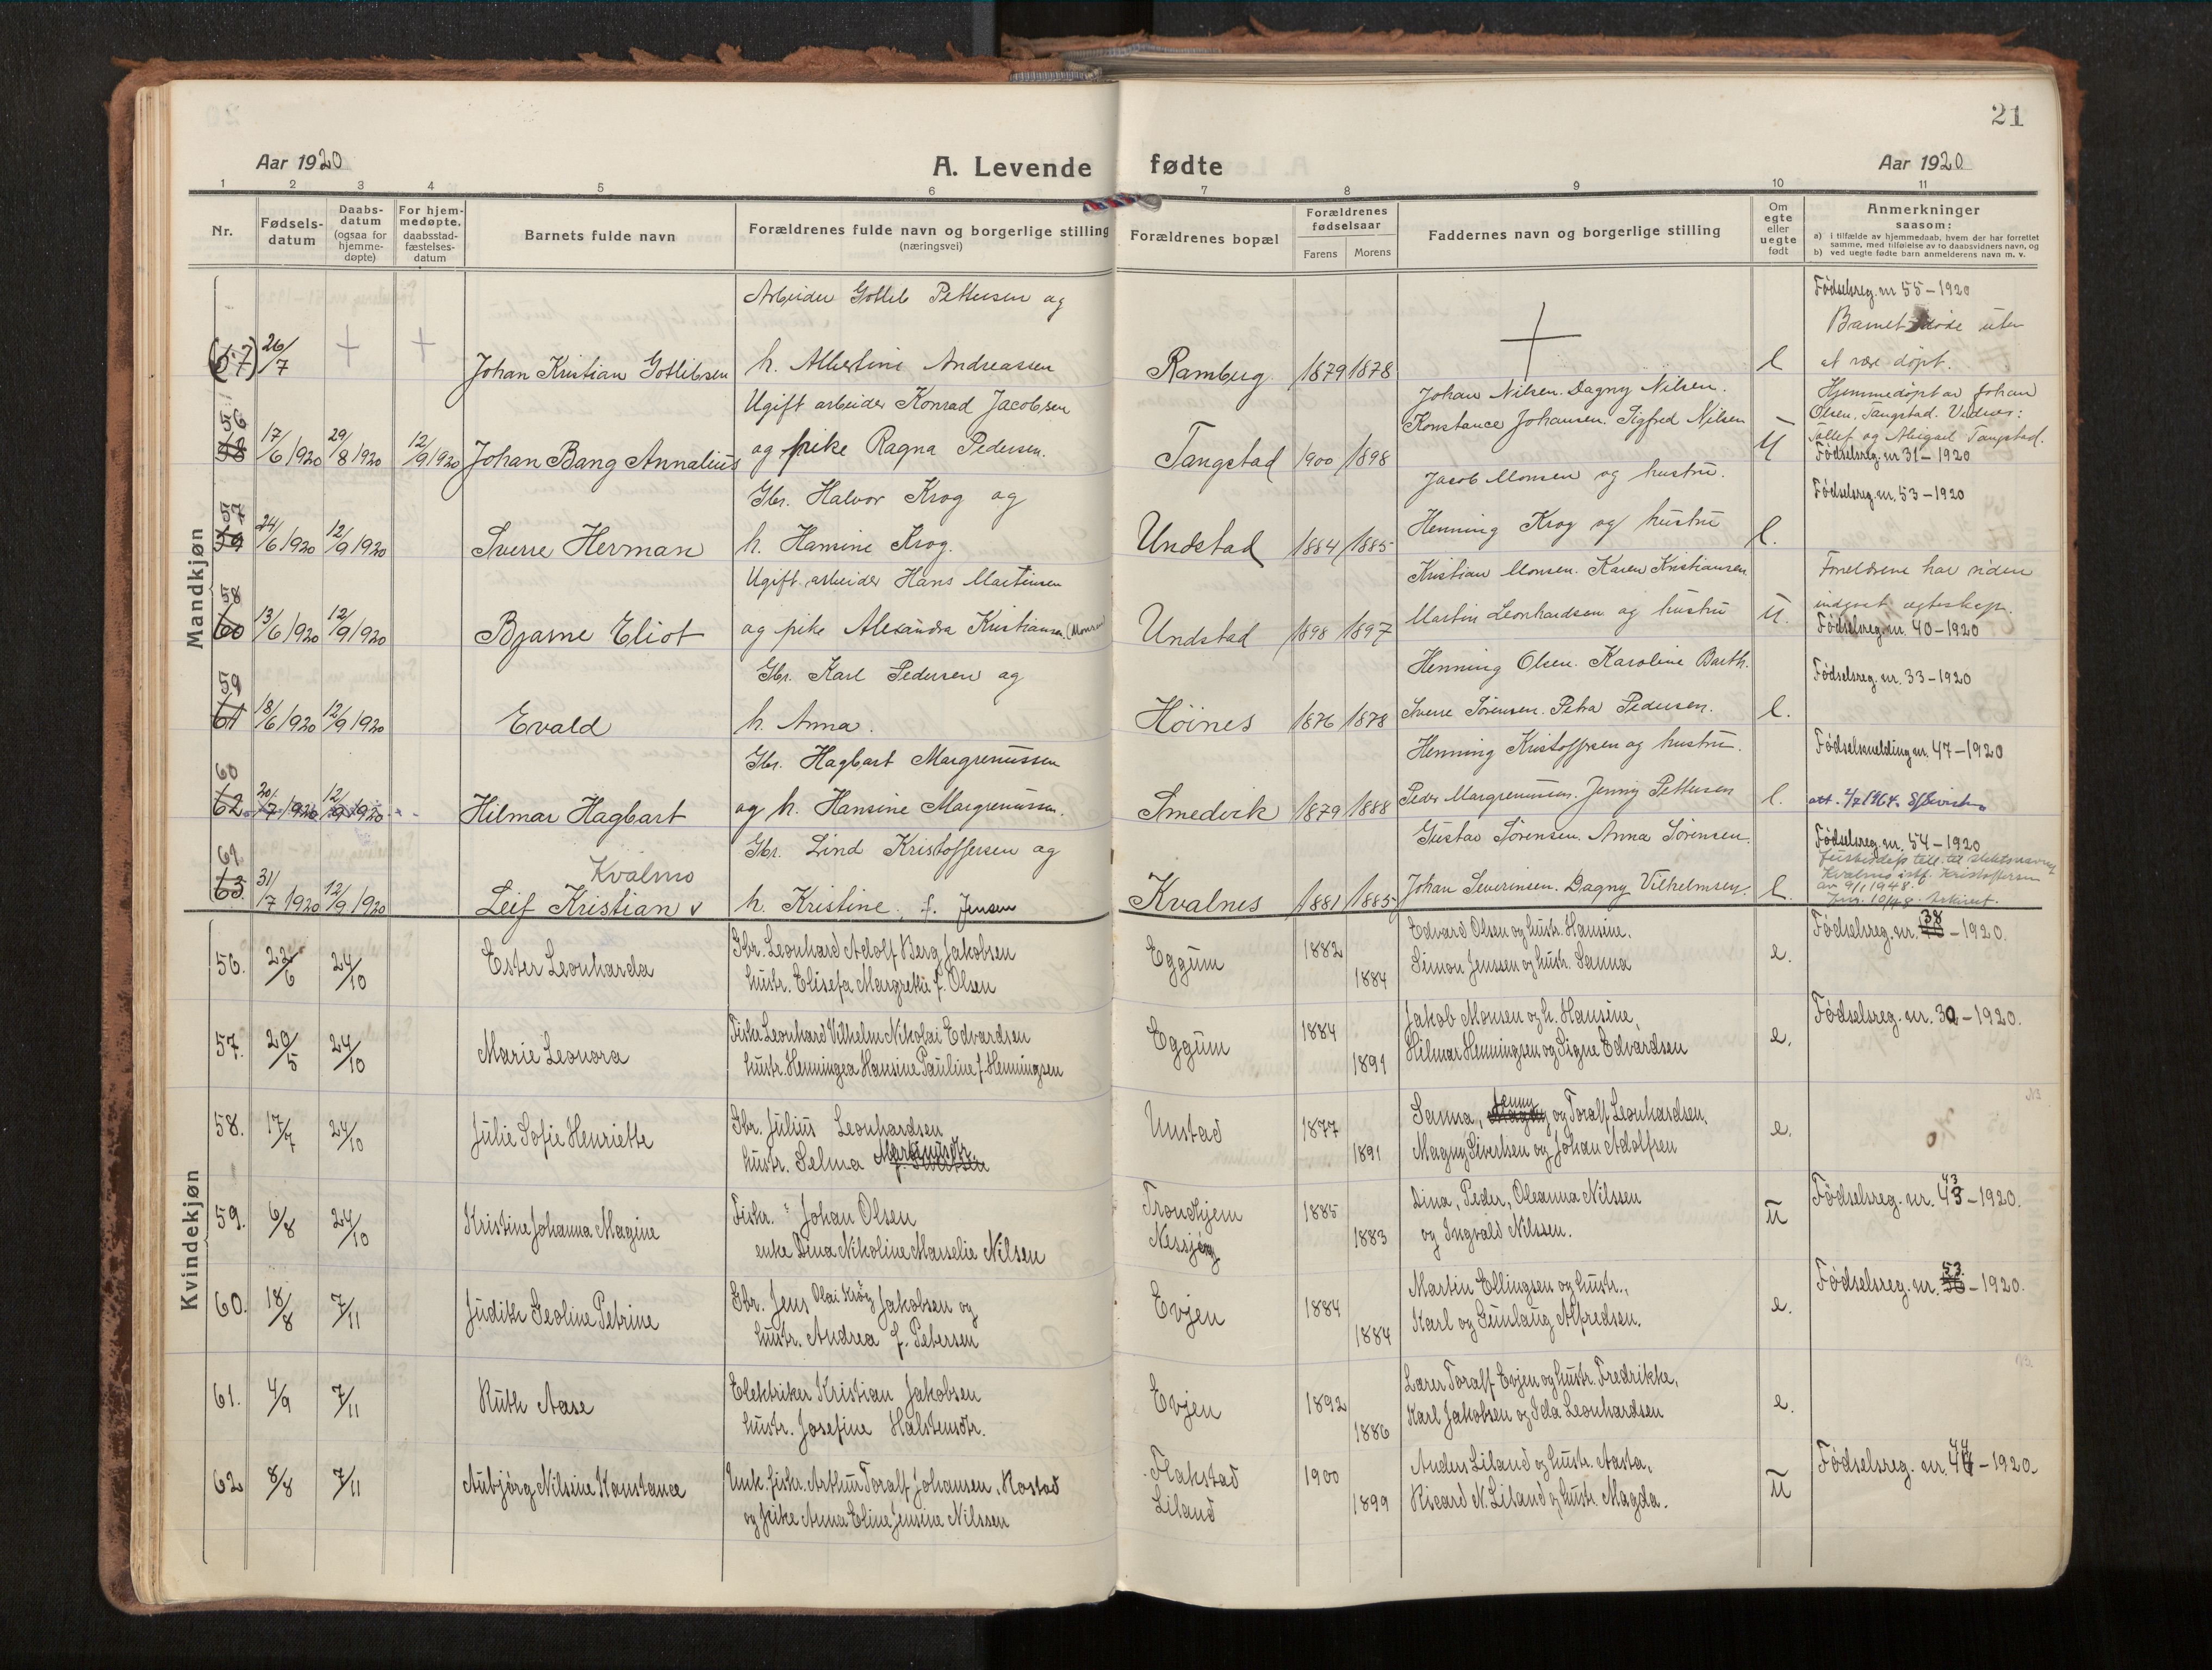 21
Aar 1920
A. Levende fødte
Aar 1920
1 2 3 4 5 6 7 8 9 10 11
Nr.
Fødsels-datum
Daabs-datum (ogsaa for hjemme-døpte)
For hjem-medøpte, daabsstad-fæstelses-datum
Barnets fulde navn
Forældrenes fulde navn og borgerlige stilling (næringsvei)
Forældrenes bopæl
Forældrenes fødselsaar
Farens Morens
Faddernes navn og borgerlige stilling
Om egte eller uegte født
Anmerkninger saasom:
a) i tilfælde av hjemmedaab, hvem der har forrettet samme, med tilføielse av to daabsvidners navn, og
b) ved uegte fødte barn anmelderens navn m. v.
Mandkjøn
Arbeider Gottlib Pettersen og
Fødselsreg. nr 55-1920
Barnet døde uten
(57) 26/7 + + Johan Kristian Gotlibsen h. Albertine Andreassen Ramberg 1879 1878 + e at være døpt.
Ugift arbeider Konrad Jacobsen
Johan Nilsen. Dagny Nilsen.
Hjemmedøpt av Johan
Konstance Johansen. Sigfred Nilsen
Olsen, Tangstad. Vidner:
56 58 17/6 1920 29/8 1920 12/9 1920 Johan Bang Annalius og pike Ragna Pedersen. Tangstad 1900 1898 U Tollef og Abigael Tangstad.
Fødselsreg. nr 31-1920
Gbr. Halvor Krog og
Jacob Monsen og hustru.
Fødselsreg. nr. 53-1920
57 59 24/6 1920 12/9 1920 Sverre Herman h. Hansine Krog. Undstad 1884 1885 Henning Krog og hustru e.
Ugift arbeider Hans Martinsen
Kristian Monsen. Karen Kristiansen
Foreldrene har siden
58 60 13/6 1920 12/9 1920 Bjarne Eliot og pike Alexandra Kristiansen (Monsen) Undstad 1898 1897 Martin Leonhardsen og hustru u. indgaat egteskap.
Fødselsreg. nr. 40-1920
Gbr. Karl Pedersen og
Henning Olsen. Karoline Barth.
Fødselsreg. nr. 33-1920
59 61 18/6 1920 12/9 1920 Evald h. Anna. Höines 1876 1878 Sverre Sørensen. Petra Pedersen. e.
Gbr. Hagbart Margrenussen
Henning Kristoffersen og hustru.
Fødselsmelding nr. 47-1920
60 62 20/7 1920 12/9 1920 Hilmar Hagbart og h. Hansine Margrenussen. Smedvik 1879 1888 Peder Margrenussen. Jenny Pettersen e. att. 4/7 1964.
Gbr. Lind Kristoffersen og
Gustav Sørensen. Anna Sørensen.
Fødselsreg. nr. 54-1920
Kvalmo
Justisdeps till. til slektsnavnet
Kvalmo istf. Kristoffersen
61 63 31/7 1920 12/9 1920 Leif Kristian v h. Kristine, f. Jensen Kvalnes 1881 1885 Johan Severinsen. Dagny Vilhelmsen. e. av 9/1 1948.
Jnr. 10/48. Arkivert.
Kvindekjøn
56. 22/6 24/10 Ester Leonharda Gbr. Leonhard Adolf Berg Jakobsen
hustr. Elisefa Margrethe f. Olsen
Eggum 1882 1884
Edvard Olsen og hustr. Hansine,
Simon Jenssen og hustr. Sanna
e. Fødselsreg. nr. 38-1920.
57. 20/5 24/10 Marie Leonora Fisker Leonhard Vilhelm Nikolai Edvardsen
hustr. Henningea Hansine Pauline f. Henningsen
Eggum 1884 1891
Jakob Monsen og h. Hansine,
Hilmar Henningsen og Signe Edvardsen
e. Fødselsreg. nr. 30-1920.
58. 17/7 24/10 Julie Sofie Henriette Gbr. Julius Leonhardsen
hustr. Selma Martinusdtr.
Unstad 1877 1891
Sanna, Jenny og Toralf Leonhardsen,
Magny Sivertsen og Johan Adolfsen
e.
59. 6/8 24/10 Kristine Johanna Magine Fiskr. Johan Olsen
enke Dina Nikoline Marselie Nilsen
Trondhjem
Nessjeng
1885 1883
Dina, Peder, Oleanna Nilssen
og Ingvald Nilssen.
u Fødselsreg. nr. 43-1920.
60. 18/8 7/11 Judith Geoline Petrine Gbr. Jens Olai Krog Jakobsen og
hustr. Andrea f. Petersen
Evjen 1884 1884
Martin Ellingsen og hustr.,
Karl og Gunlaug Alfredsen.
e. Fødselsreg. nr. 53.-1920.
61. 4/9 7/11 Ruth Aase Elektriker Kristian Jakobsen
hustr. Josefine Halstensdtr.
Evjen 1892 1886
Lærer Toralf Evjen og hustr. Fredrikke,
Karl Jakobsen og Ida Leonhardsen
e.
62 8/8 7/11 Aubjørg Nilsine Konstance Unk. fiskr. Arthur Toralf Johansen, Rostad
og pike Anna Eline Jensine Nilssen
Flakstad
Liland
1900 1899
Anders Liland og hustr. Aasta,
Ricard N. Liland og hustr. Magda.
u Fødselsreg. nr. 44-1920.